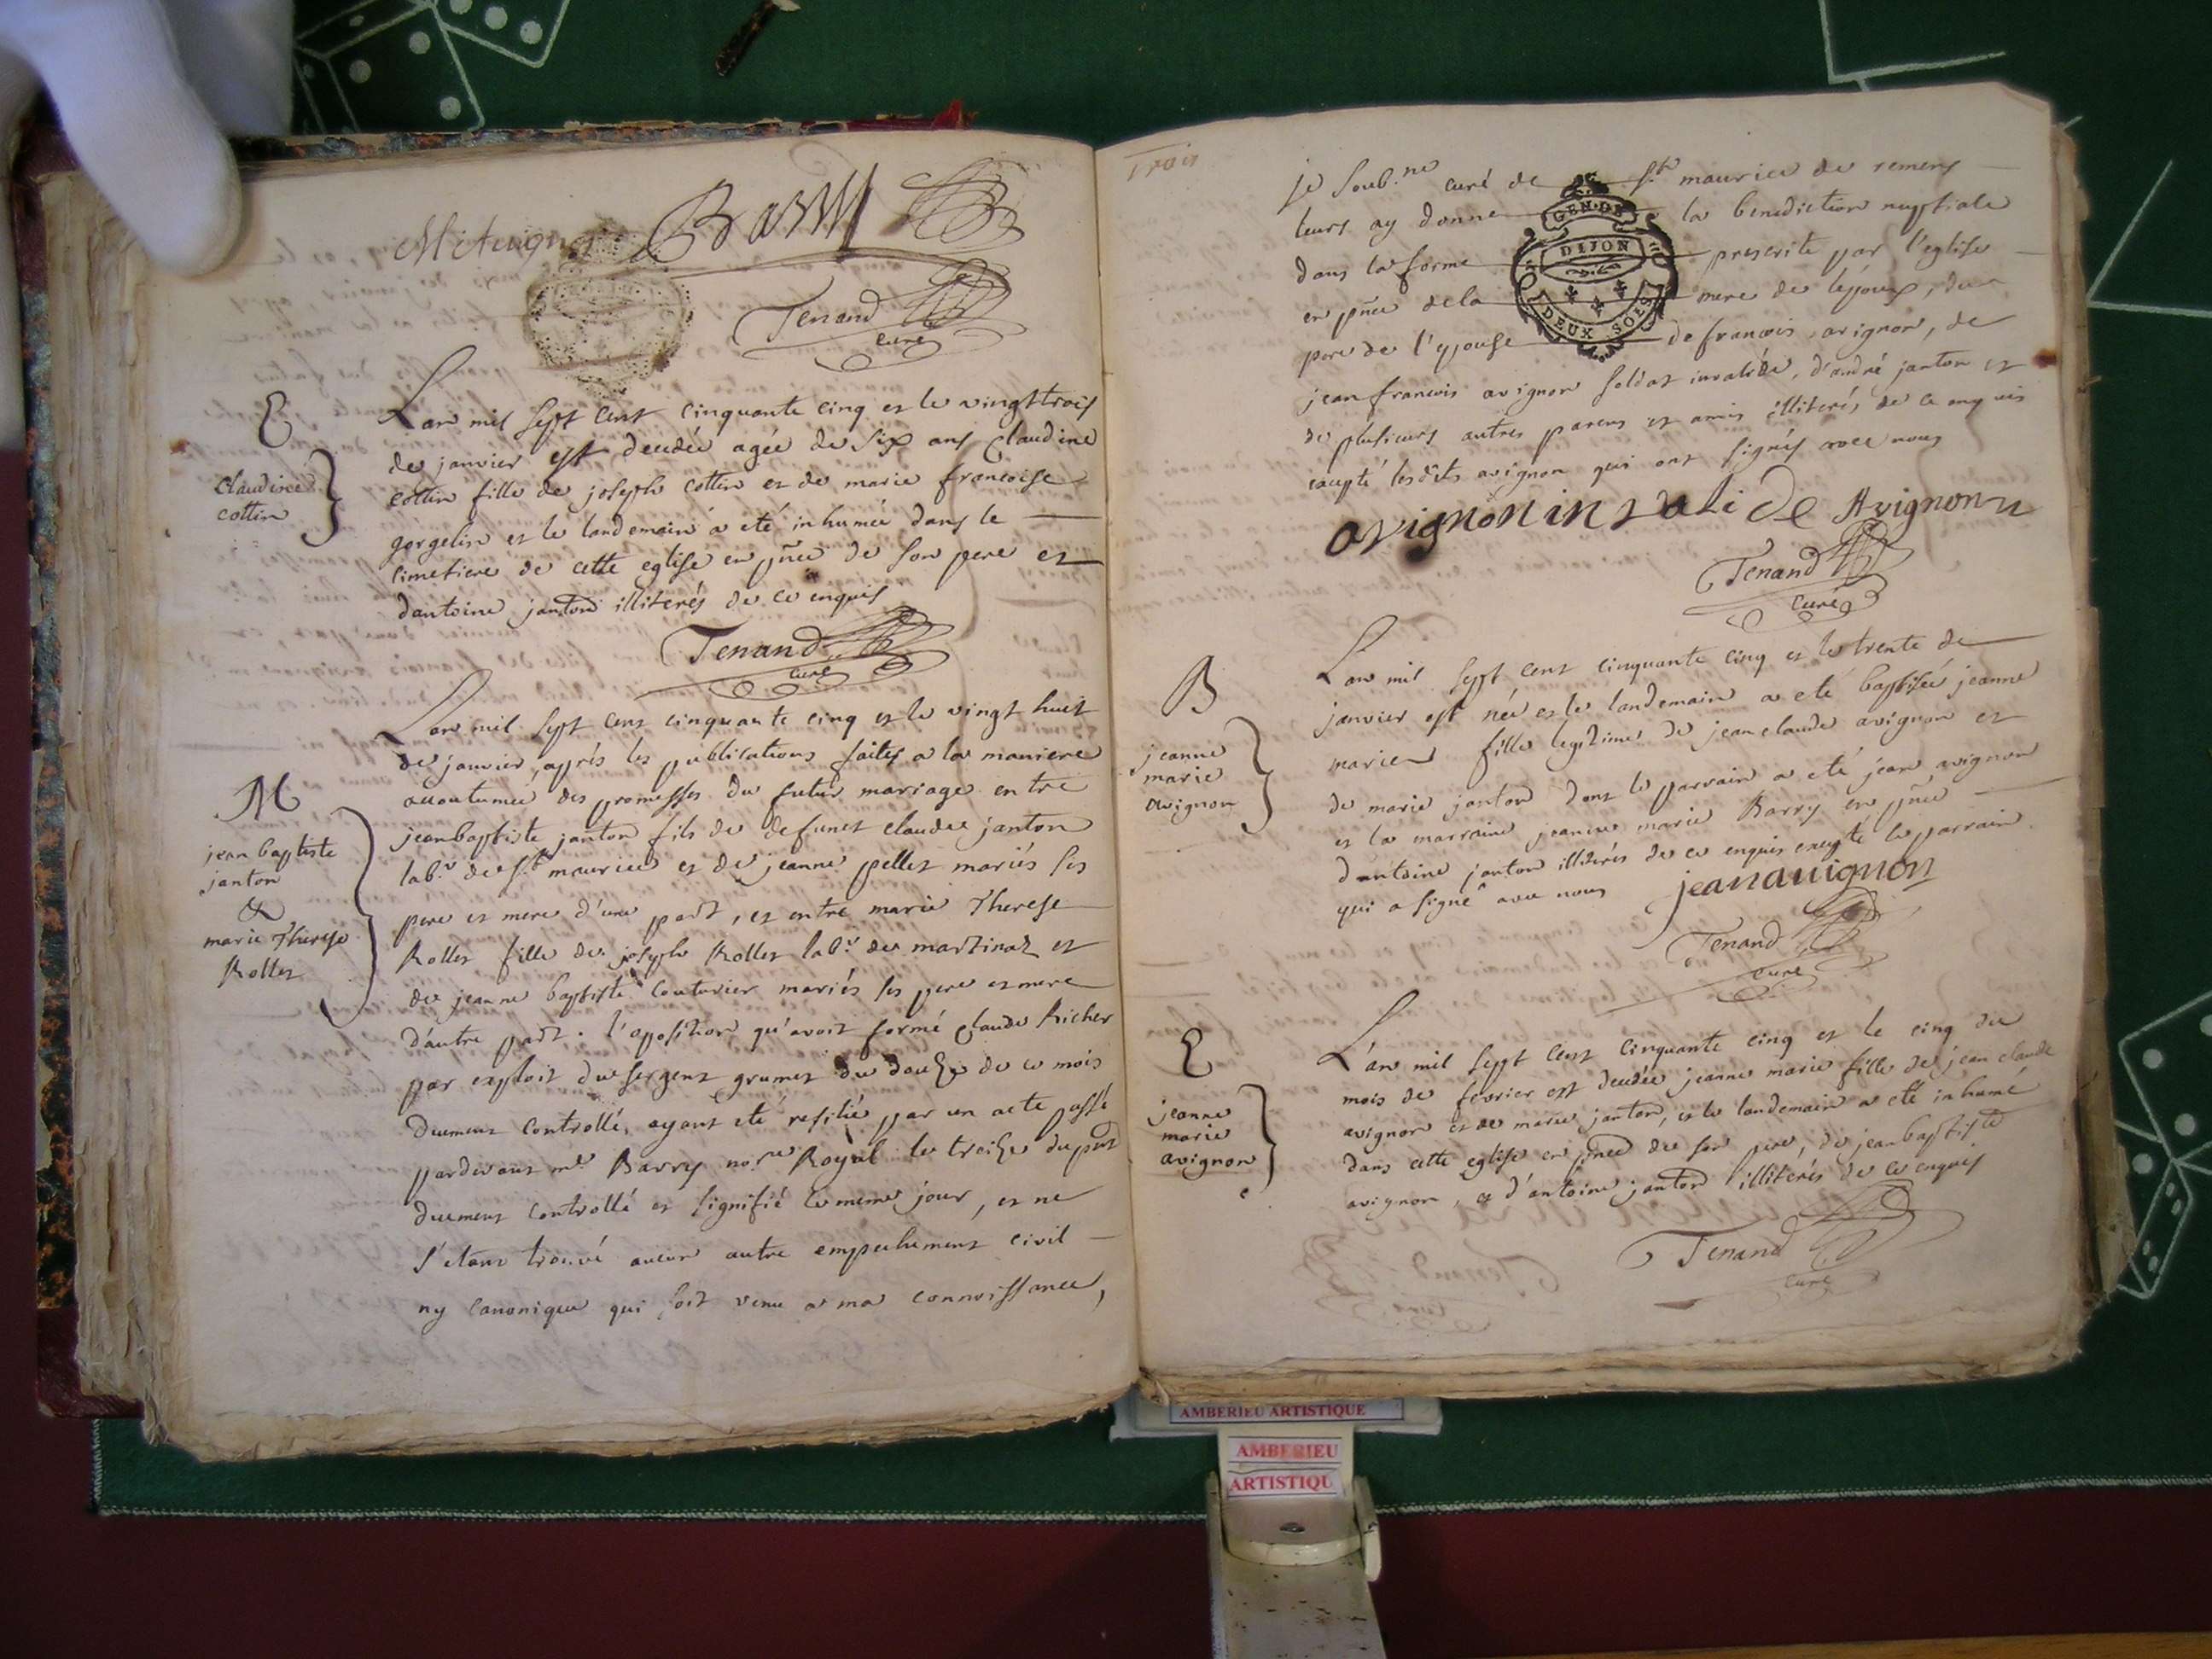 M Avignon Barry
Tenand
curé
E
claudine
cottin
L'an mil sept cent cinquante cinq et le vingt trois
de janvier est decedée agée de six ans claudine
cottin fille de joseph cottin et de marie francoise
gorgelin et le landemain a eté inhumée dans le
cimetiere de cette eglise en pñce de son pere et
dantoine janton illiterés de ce enquis
Tenand
curé
M
jean baptiste
janton
&
marie Therese
Rollet
L'an mil sept cent cinquante cinq et le vingt huit
de janvier, après les publications faites a la maniere
accoutumée des promesses du futur mariage entre
jean baptiste janton fils de defunct claude janton
lab.r de st maurice et de jeanne pellet mariés ses
pere et mere d'une part, et entre marie Therese
Rollet fille de joseph Rollet lab.r de martinaz et
de jeanne baptiste couturier mariés ses pere et mere
d'autre part. l'oposition qu'avoit formé claude Richer
par exploit du sergent grumet du douze de ce mois
duement controllé, ayant eté resilié par un acte passé
pardevant me Barry no.re Royal le treize du pñt
duement controllé et signifié le meme jour, et ne
s'etant trouvé aucun autre empechement civil
ny canonique qui soit venu a ma connoissance,
Trois
je soub.né curé de st maurice de remens
leurs ay donné la benediction nuptiale
dans la forme prescrite par l'eglise
en pñce de la mere de l'epoux, du
pere de l'epouse de francois avignon, de
jean francois avignon soldat invalide, d'andré janton et
de plusieurs autres parens et amis illiterés de ce enquis
excepté lesdits avignon qui ont signés avec nous
GEN. DE
DIJON
DEUX SOLS
avignon invalide Avignon
Tenand
curé
B
jeanne
marie
avignon
L'an mil sept cent cinquante cinq et le trente de
janvier est née et le landemain a eté baptisée jeanne
marie fille legitime de jean claude avignon et
de marie janton dont le parrain a eté jean avignon
et la marraine jeanne marie Barry en pñce
d'antoine janton illiterés de ce enquis excepté le parrain
qui a signé avec nous jean avignon
Tenand
curé
E
jeanne
marie
avignon
L'an mil sept cent cinquante cinq et le cinq du
mois de fevrier est decedée jeanne marie fille de jean claude
avignon et de marie janton, et le landemain a eté inhumé
dans cette eglise en pñce de son pere, de jean baptiste
avignon, et d'antoine janton illiterés de ce enquis
Tenand
curé
AMBERIEU ARTISTIQUE
AMBERIEU
ARTISTIQU